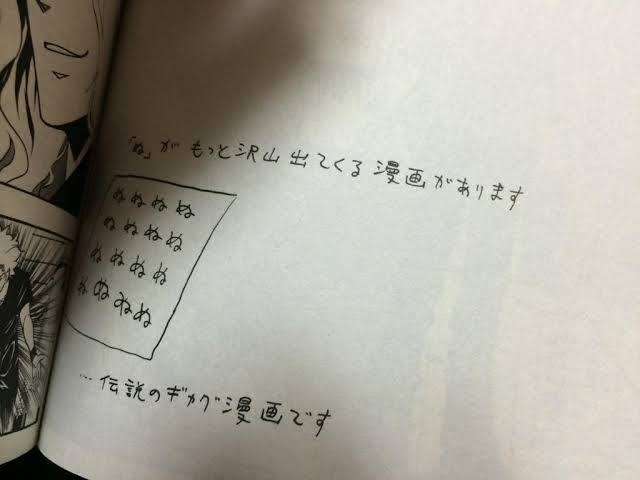 「ぬ」がもっと沢山出てくる漫画があります
ぬぬぬぬ
ぬぬぬぬ
ぬぬぬぬ
ぬぬぬぬ
…伝説のギガグ漫画です